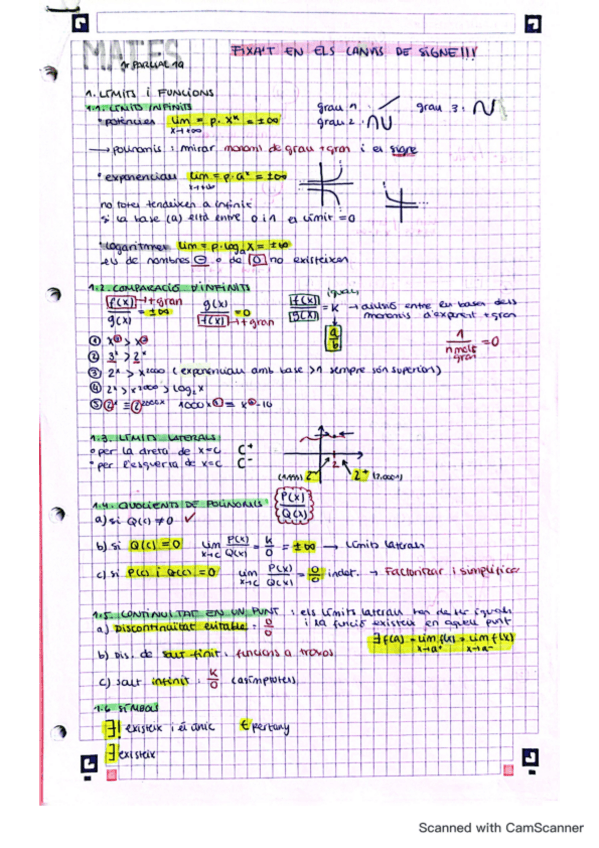 MATES
FIXA'T EN ELS CANVIS DE SIGNE!!!
1r PARCIAL 1Q
1. LÍMITS i FUNCIONS
1.1. LÍMITS INFINITS
grau 1: grau 3:
grau 2:
• potències lim = p·xⁿ = ±∞
x→+∞
→ polinomis: mirar monomi de grau + gran i el signe
• exponencials lim = p·aˣ = ±∞
x→+∞
no totes tendeixen a infinit
si la base (a) està entre 0 i 1 el límit = 0
• logaritmes lim = p·logₐX = ±∞
els de nombres ⊖ o de 0 no existeixen
1.2. COMPARACIÓ D'INFINITS
f(x) → + gran
g(x) = ±∞
g(x)
f(x) → + gran = 0
iguals
f(x)
g(x) = K → divisió entre les bases dels monomis d'exponent + gran
a
b
1
n molt gran = 0
①
② 3ˣ > 2ˣ
③ 2ˣ > x²⁰⁰⁰ (exponencials amb base >1 sempre són superiors)
④ 2ˣ > x²⁰⁰⁰ > log₂x
⑤
1.3. LÍMITS LATERALS
• per la dreta de x=c C⁺
• per l'esquerra de x=c C⁻
2
2⁻ 2⁺
1.4. QUOCIENTS DE POLINOMIS
P(x)
Q(x)
a) si Q(c) ≠ 0 ✓
b) si Q(c) = 0 lim x→c P(x)/Q(x) = K/0 = ±∞ → Límits laterals
c) si P(c) i Q(c) = 0 lim x→c P(x)/Q(x) = 0/0 indet. → Factoritzar i simplificar
1.5. CONTINUÏTAT EN UN PUNT: els límits laterals han de ser iguals
i la funció existeix en aquell punt
a) Discontinuïtat evitable: 0/0
∃ f(a) = lim f(x) = lim f(x)
x→a⁺ x→a⁻
b) Dis. de salt finit: funcions a trossos
c) salt infinit: K/0 (asímptotes)
1.6 SÍMBOLS
∃! existeix i és únic ∈ pertany
∃ existeix
Scanned with CamScanner